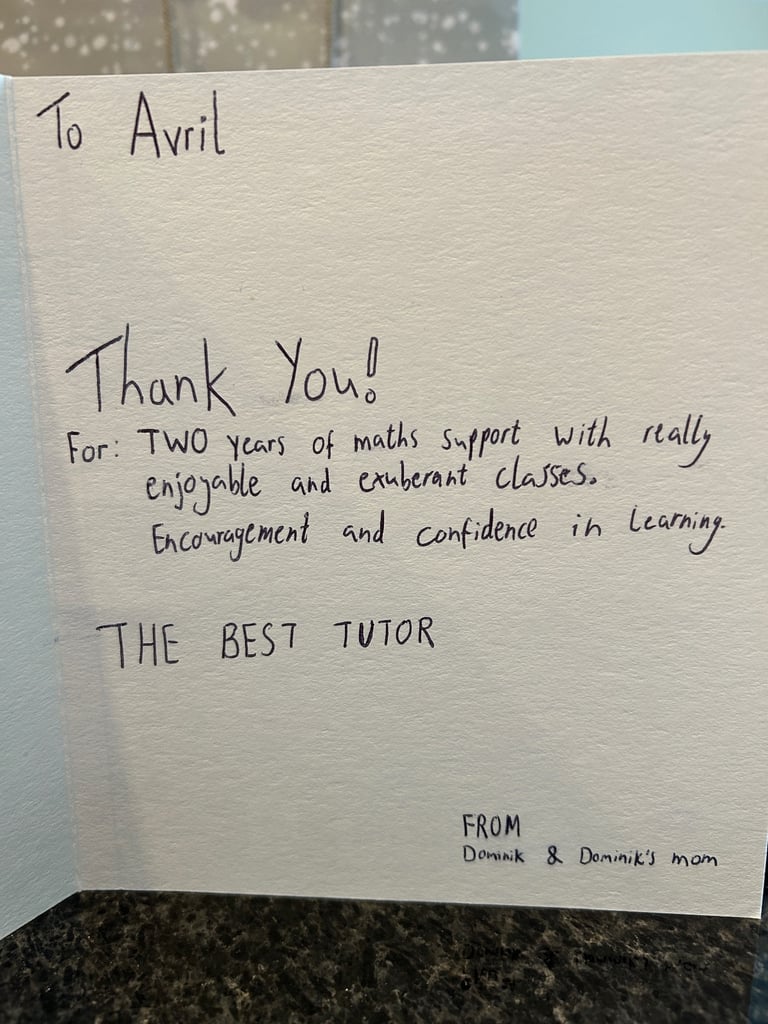 To Avril
Thank You!
For: TWO years of maths support with really
enjoyable and exuberant classes.
Encouragement and confidence in learning.
THE BEST TUTOR
FROM
Dominik & Dominik's mom